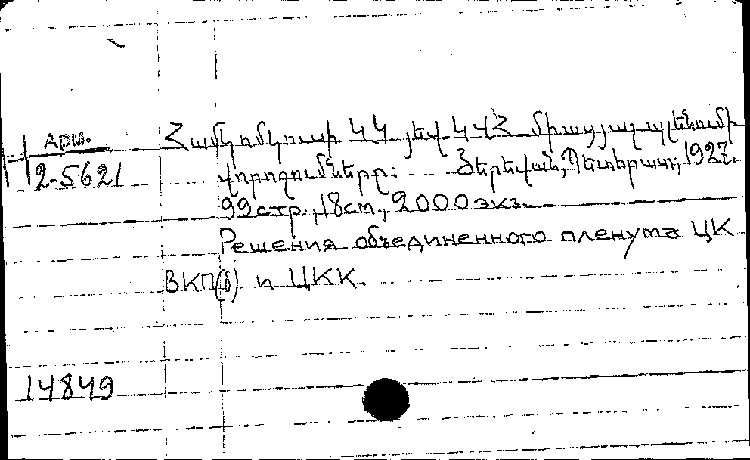 Համկոմկուսի ԿԿ յեվ ԿՎՀ միացյալ պլենումի
арм.
2-5621
վորոշումները: Յերեվան, Պետհրատ, 1927.
99 стр., 18 см., 2000 экз.
Решения объединенного пленума ЦК
ВКП(б) и ЦКК.
14849